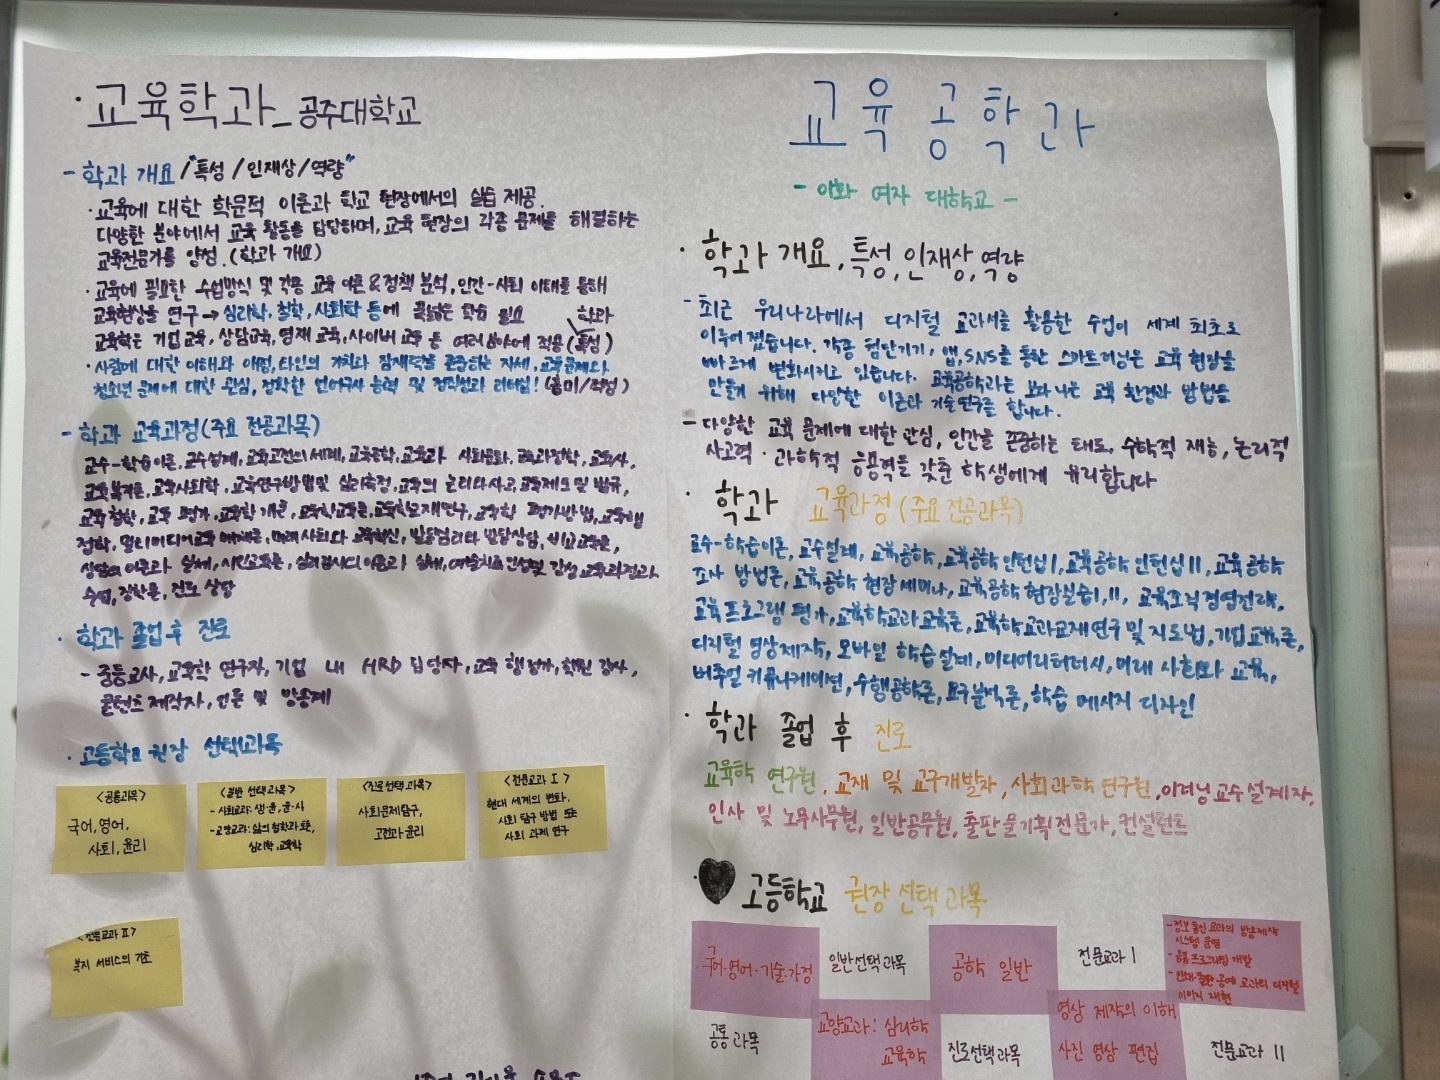 · 교육학과_공주대학교
- 학과 개요 / "특성 / 인재상 / 역량"
· 교육에 대한 학문적 이론과 학교 현장에서의 실습 제공.
다양한 분야에서 교육 활동을 담당하며, 교육 현장의 각종 문제를 해결하는
교육전문가를 양성. (학과 개요)
· 교육에 필요한 수업방식 및 각종 교육 이론 & 정책 분석, 인간-사회 이해를 통해
교육현상을 연구 → 심리학, 철학, 사회학 등에 폭넓은 학습 필요
학과
교육학은 기업교육, 상담교육, 영재 교육, 사이버 교육 등 여러 분야에 적용 (특성)
· 사람에 대한 이해와 애정, 타인의 가치와 잠재력을 존중하는 자세, 교육문제와
청소년 문제에 대한 관심, 정확한 언어구사 능력 및 정직성과 리더십! (흥미/적성)
- 학과 교육과정 (주요 전공과목)
교수-학습이론, 교수설계, 교육고전의 세계, 교육공학, 교육과 사회문화, 교육과정학, 교육사,
교육복지론, 교육사회학, 교육연구방법 및 심리측정, 교육의 논리와 사고, 교육제도 및 법규,
교육철학, 교육 평가, 교육학 개론, 교육학교육론, 교육학교재연구, 교육학 평가방법, 교육행
정학, 멀티미디어교육 미래사회와 교육혁신, 발달심리와 발달상담, 비교교육론,
상담의 이론과 실제, 심리검사의 이론과 실제, 예술치료 인성 및 감성 교육과정과
수업, 장학론, 진로 상담
· 학과 졸업 후 진로
- 중등교사, 교육학 연구자, 기업 내 HRD 담당자, 교육 행정가, 학원 강사,
콘텐츠 제작자, 언론 및 방송계
· 고등학교 권장 선택과목
<공통과목>
국어, 영어,
사회, 윤리
<일반 선택 과목>
- 사회교과: 생·윤, 윤·사
- 교양교과: 삶의 철학과 논술,
심리학, 교육학
<진로선택 과목>
사회문제탐구,
고전과 윤리
<전문교과 I>
현대 세계의 변화,
사회 탐구 방법 또는
사회 과제 연구
<전문교과 II>
복지 서비스의 기초
교육 공학과
- 이화 여자 대학교 -
· 학과 개요, 특성, 인재상, 역량
- 최근 우리나라에서 디지털 교과서를 활용한 수업이 세계 최초로
이루어졌습니다. 각종 첨단기기, 앱, SNS를 통한 스마트러닝은 교육 현장을
빠르게 변화시키고 있습니다. 교육공학과는 보다 나은 교육 환경과 방법을
만들기 위해 다양한 이론과 기술연구를 합니다.
- 다양한 교육 문제에 대한 관심, 인간을 존중하는 태도, 수학적 재능, 논리적
사고력 · 과학적 응용력을 갖춘 학생에게 유리합니다
· 학과 교육과정 (주요 전공과목)
교수-학습이론, 교수설계, 교육공학, 교육공학 인턴십 I, 교육공학 인턴십 II, 교육 공학
조사 방법론, 교육공학 현장 세미나, 교육공학 현장실습 I, II, 교육조직 경영전략,
교육프로그램 평가, 교육학교과교육론, 교육학교과교재 연구 및 지도법, 기업 교육론,
디지털 영상제작, 모바일 학습 설계, 미디어리터러시, 미래 사회와 교육,
비주얼 커뮤니케이션, 수행공학론, 요구분석론, 학습 메시지 디자인
· 학과 졸업 후 진로
교육학 연구원, 교재 및 교구개발자, 사회과학 연구원, 이러닝 교수 설계자,
인사 및 노무사무원, 일반공무원, 출판물기획전문가, 컨설턴트
· ♥ 고등학교 권장 선택 과목
국어·영어·기술·가정
일반선택 과목
공학 일반
전문교과 I
- 정보 통신 교과의 방송제작
시스템 운영
- 응용 프로그래밍 개발
- 인쇄·출판·공예 교과의 디지털
이미지 재현
공통 과목
교양교과: 심리학
교육학
진로선택 과목
영상 제작의 이해
사진 영상 편집
전문교과 II